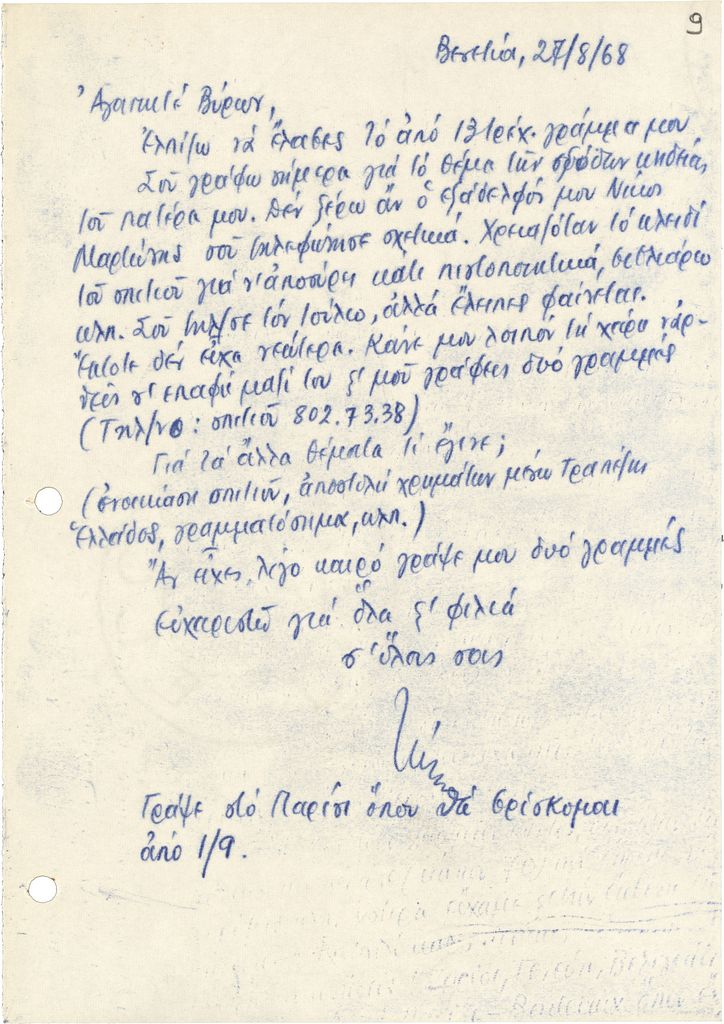 9
Βενετία, 27/8/68
Ἀγαπητέ Βύρων,
Ἐλπίζω νά ἔλαβες τό ἀπό 13 τρέχ. γράμμα μου
Σοῦ γράφω σήμερα γιά τό θέμα τῶν ἐξόδων κηδείας
τοῦ πατέρα μου. Δέν ξέρω ἄν ὁ ἐξάδελφός μου Νίκος
σοῦ τηλεφώνησε σχετικά. Χρειαζόταν τό κλειδί
τοῦ σπιτιοῦ γιά ν' ἀποσύρη κάτι πιστοποιητικά, βιβλιάριο
κλπ. Σοῦ τηλ/σε τόν Ἰούλιο, ἀλλά ἔλειπες φαίνεται.
Ἔκτοτε δέν εἶχα νεώτερα. Κάνε μου λοιπόν τή χάρη νάρ-
θεῖς σ' ἐπαφή μαζί του ξ' μοῦ γράψεις δυό γραμμές
(Τηλ/νο: σπιτιοῦ 802.73.38)
Γιά τά ἄλλα θέματα τί ἔγινε;
(ἐνοικίαση σπιτιοῦ, ἀποστολή χρημάτων μέσω Τραπέζης
Ἑλλάδος, γραμματόσημα, κλπ.)
Ἄν εἶχες λίγο καιρό γράψε μου δυό γραμμές
Εὐχαριστῶ γιά ὅλα ξ' φιλιά
σ' ὅλους σας
Γράψε στό Παρίσι ὅπου θά βρίσκομαι
ἀπό 1/9.